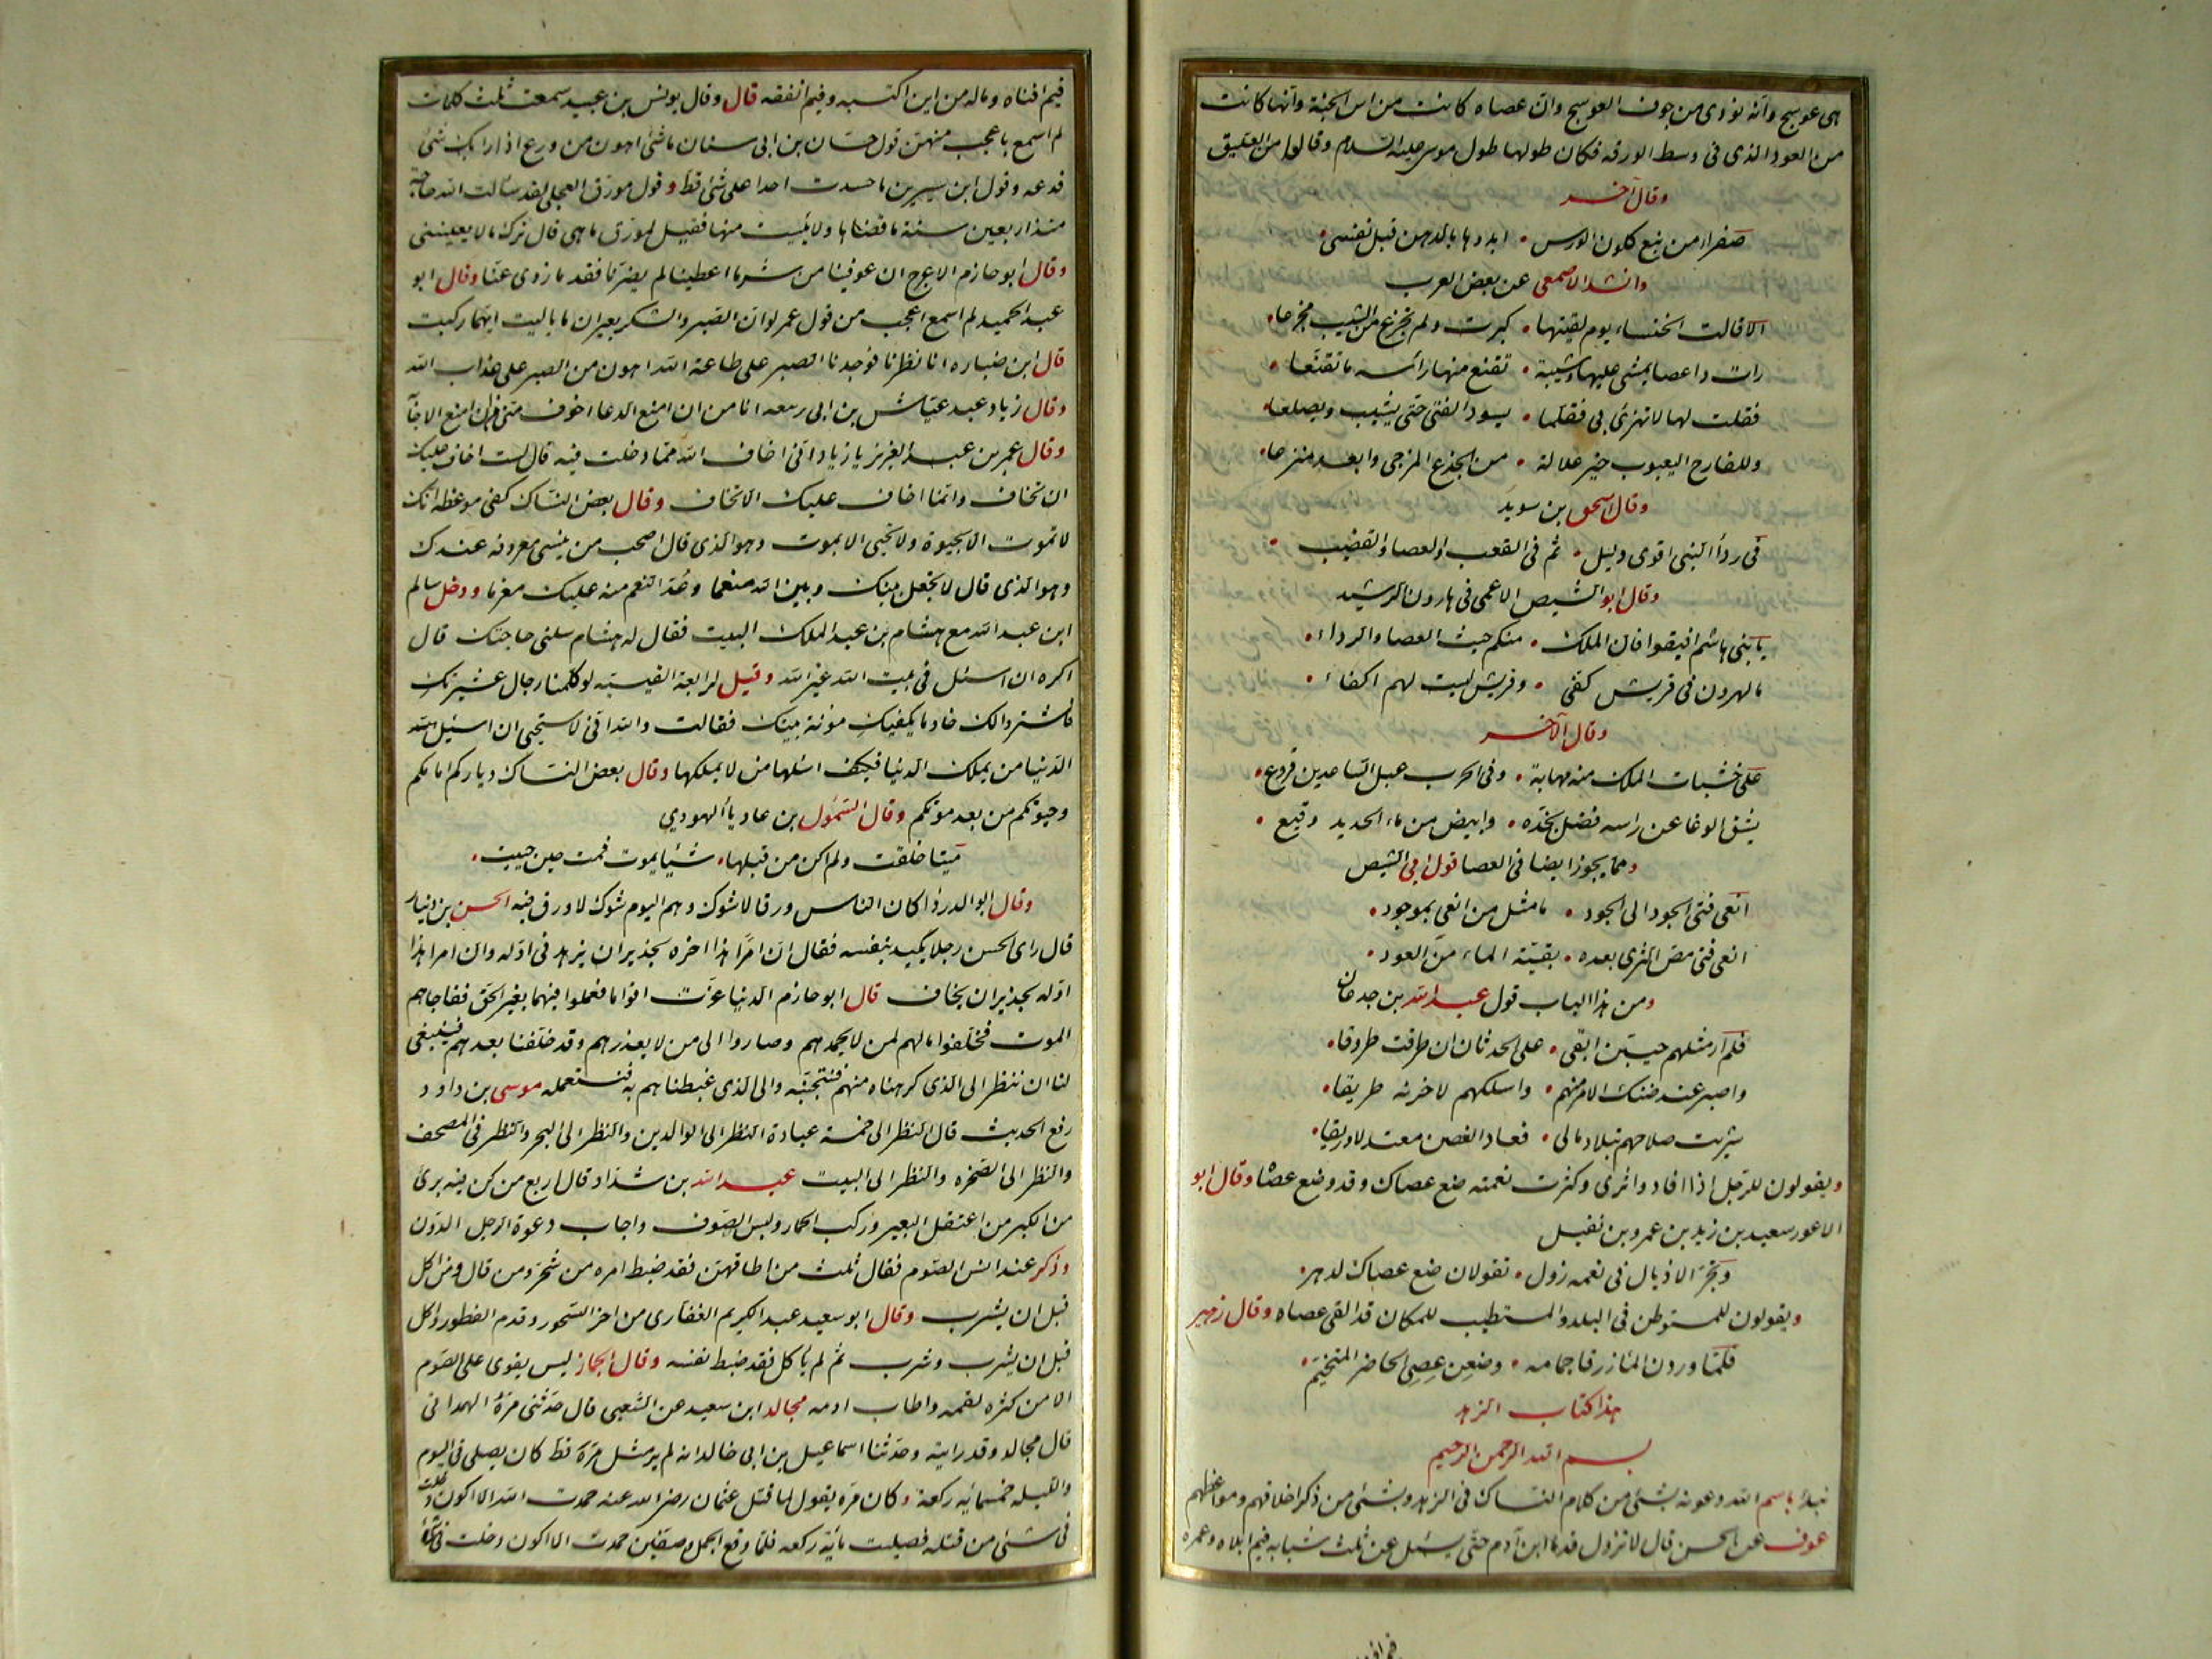 هى عوسج وأنه نودى من جوف العوسج وان عصاه كانت من اس الجنة وانها كانت
من العود الذى فى وسط الورقه فكان طولها طول موسى عليه السلام وقالوا من العليق
وقال آخر
صفراء من نبع كلون الورس • ابدءها بالدهن قبل نفسى •
وانشد الاصمعى عن بعض العرب
الا قالت الخنساء يوم لقيتها • كبرت ولم تجزع من الشيب مجزعا •
رات ذا عصا يمشى عليها وشيبة • تقنع منها رأسه ما تقنعا •
فقلت لها لا تهزئ بى فقلما • يسود الفتى حتى يشيب ويصلعا •
وللقارح اليعبوب خير علالة • من الجذع المزجى وابعد منزعا •
وقال اسحق بن سويد
فى رداء النبى اقوى دليل • ثم فى القعب والعصا والقضيب •
وقال ابو الشيص الاعمى فى هارون الرشيد
يا بنى هاشم افيقوا فان الملك • منكم حيث العصا والرداء •
ما لهرون فى قريش كفى • وقريش ليست لهم اكفاء •
وقال الآخر
على خشبات الملك منه مهابة • وفى الحرب عبل الساعدين قروع •
يشق الوغا عن راسه فضل نجده • وابيض من ماء الحديد وقيع •
ومما يجوز ايضا فى العصا قول ابى الشيص
انعى فتى الجود الى الجود • ما مثل من انعى بموجود •
انعى فتى مص الثرى بعده • بقية الماء من العود •
ومن هذا الباب قول عبد الله بن جدعان
فلم ار مثلهم حيين ابقى • على الحدثان ان طرقت طروقا •
واصبر عند ضنك الامر منهم • واسلكهم لاخرنه طريقا •
شريت صلاحهم بتلاد مالى • فعاد الغصن معتدلا وريقا •
ويقولون للرجل اذا افاد واثرى وكثرت نعمته ضع عصاك وقد وضع عصا وقال ابو
الاعور سعيد بن زيد بن عمرو بن نفيل
وتجر الاذيال فى نعمه زول • تقولان ضع عصاك لدهر •
ويقولون للمستوطن فى البلد والمستطيب للمكان قد القى عصاه وقال زهير
فلما وردن الما زرقا جمامه • وضعن عصى الحاضر المتخيم •
هذا كتاب الزهد
بسم الله الرحمن الرحيم
نبدأ باسم الله وعونه بشئ من كلام النساك فى الزهد وبشئ من ذكر اخلاقهم ومواعظهم
عوف عن الحسن قال لا تزول قدما ابن آدم حتى يسئل عن ثلث شبابه فيم ابلاه وعمره
فيم افناه وماله من اين اكتسبه وفيم انفقه قال وقال يونس بن عبيد سمعت ثلث كلمات
لم اسمع باعجب منهن قول حسان بن ابى سنان ما شئ اهون من ورع اذا رابك شئ
فدعه وقول ابن سيرين ما حسدت احدا على شئ قط وقول مورق العجلى لقد سألت الله حاجة
منذ اربعين سنة ما قضاها ولا يئست منها فقيل لمورق ما هى قال ترك ما لا يعيننى
وقال ابو حازم الاعرج ان عوفينا من شر ما اعطينا لم يضرنا فقد ما زوى عنا وقال ابو
عبد الحميد لم اسمع اعجب من قول عمر لو ان الصبر والشكر بعيران ما باليت ايهما ركبت
قال ابن ضباره انا نظرنا فوجدنا الصبر على طاعة الله اهون من الصبر على عذاب الله
وقال زياد عبد عياش بن ابى ربيعه انا من ان امنع الدعا اخوف منى من ان امنع الاجابة
وقال عمر بن عبد العزيز يا زياد انى اخاف الله مما دخلت فيه قال لست اخاف عليك
ان تخاف وانما اخاف عليك الا تخاف وقال بعض النساك كفى موعظه انك
لا تموت الا بحيوة ولا تحيى الا بموت وهو الذى قال اصحب من ينسى معروفه عندك
وهو الذى قال لا تجعل بينك وبين الله منعما وعد النعم منه عليك مغرما ودخل سالم
ابن عبد الله مع هشام بن عبد الملك البيت فقال له هشام سلنى حاجتك قال
اكره ان اسئل فى بيت الله غير الله وقيل لرابعة القيسيه لو كلمنا رجال عشيرتك
فاشتروا لك خادما يكفيك مؤنة بيتك فقالت والله انى لاستحيى ان اسئل
الدنيا من يملك الدنيا فكيف اسئلها من لا يملكها وقال بعض النساك دياركم امامكم
وحيوتكم من بعد موتكم وقال السموئل بن عاديا اليهودي
ميتا خلقت ولم اكن من قبلها • شيئا يموت فمت حين حييت •
وقال ابو الدرداء كان الناس ورقا لا شوك وهم اليوم شوك لا ورق فيه الحسن بن دينار
قال راى الحسن رجلا يكيد بنفسه فقال ان امرا هذا اخره لجدير ان يزهد فى اوله وان امرا هذا
اوله لجدير ان يخاف قال ابو حازم الدنيا غرت اقواما فعملوا فيهما بغير الحق ففاجاهم
الموت فخلفوا مالهم لمن لا يحمدهم وصاروا الى من لا يعذرهم وقد خلفنا بعدهم فينبغى
لنا ان ننظر الى الذى كرهناه منهم فنتجنبه والى الذى غبطناهم به فنستعمله موسى بن داود
رفع الحديث قال النظر الى خمسة عبادة النظر الى الوالدين والنظر الى البحر والنظر فى المصحف
والنظر الى الصخره والنظر الى البيت عبد الله بن شداد قال اربع من كن فيه برئ
من الكبر من اعتقل البعير وركب الحمار ولبس الصوف واجاب دعوة الرجل الدون
وذكر عند انس الصوم فقال ثلث من اطاقهن فقد ضبط امره من تسحر ومن قال ومن اكل
قبل ان يشرب وقال ابو سعيد عبد الكريم الغفارى من اخر السحور وقدم الفطور واكل
قبل ان يشرب وشرب ثم لم يأكل فقد ضبط نفسه وقال الجماز ليس يقوى على الصوم
الا من كثره لقمه واطاب ادمه مجالد ابن سعيد عن الشعبى قال حدثنى مرة الهمدانى
قال مجالد وقد رايته وحدثنا اسماعيل بن ابى خالد انه لم ير مثل مرة قط كان يصلى فى اليوم
والليله خمسمائه ركعة وكان مره يقول لما قتل عثمان رضى الله عنه حمدت الله الا اكون دخلت
فى شئ من قتله فصليت مائة ركعه فلما وقع الجمل وصفين حمدت الا اكون دخلت فى